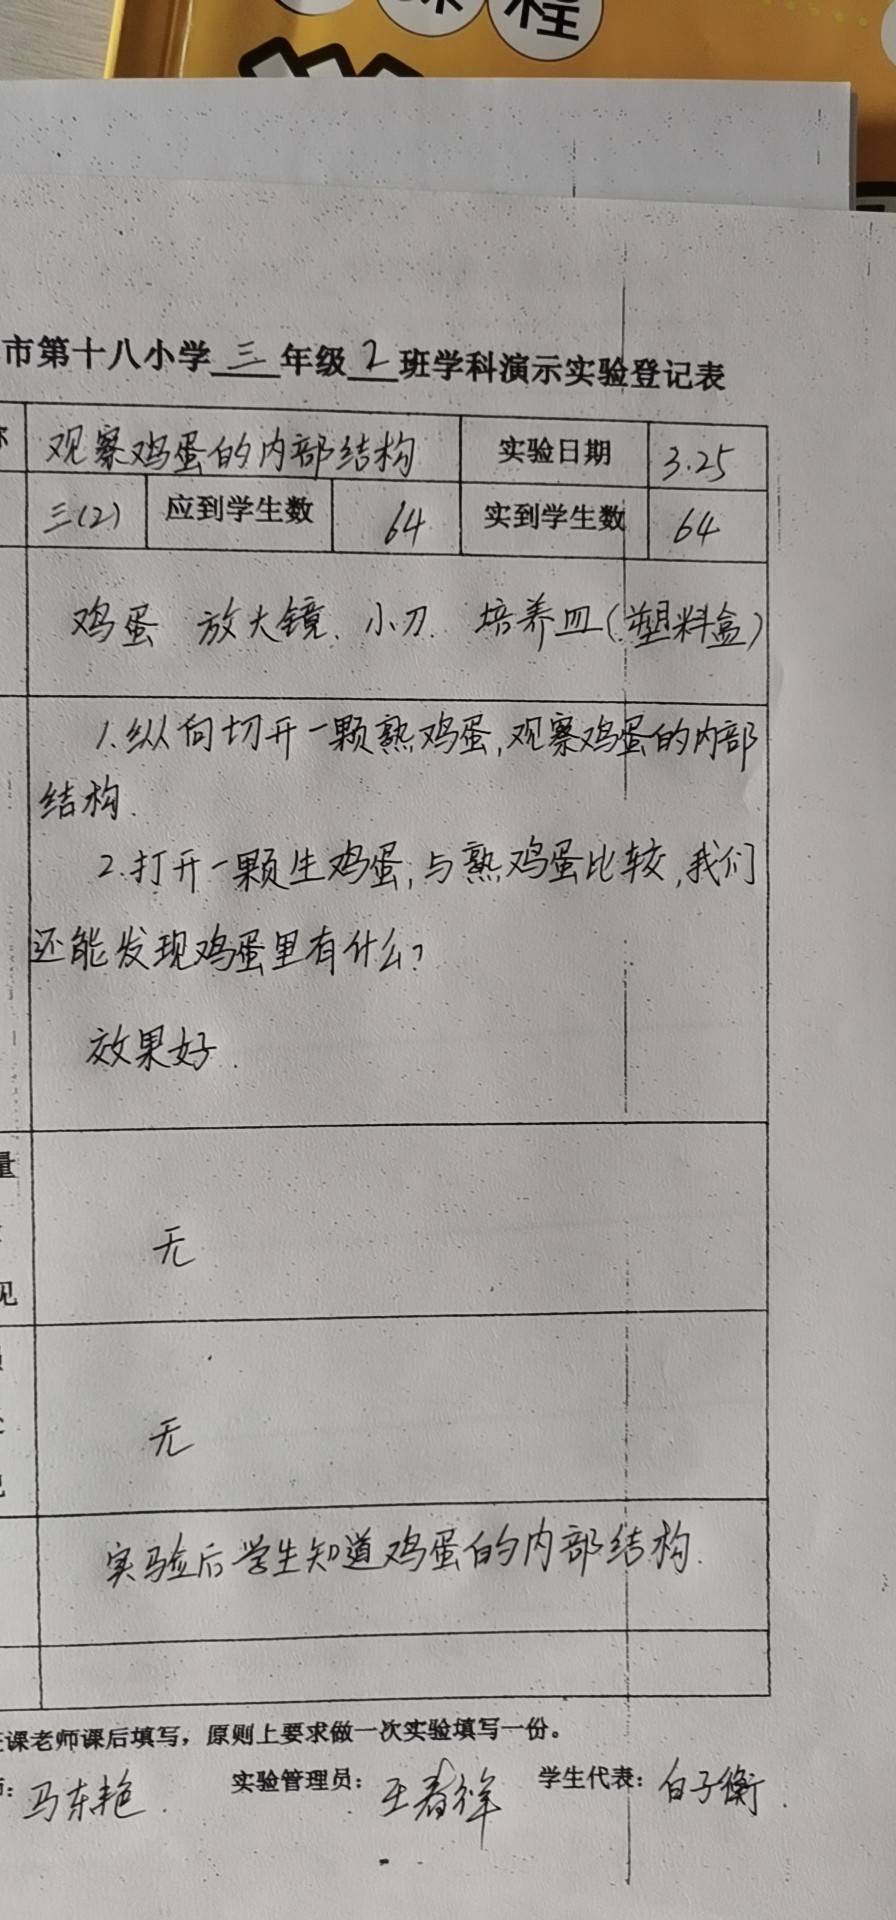 课程
市第十八小学 三 年级 2 班学科演示实验登记表
观察鸡蛋的内部结构 实验日期 3.25
三(2) 应到学生数 64 实到学生数 64
鸡蛋 放大镜、小刀、培养皿(塑料盒)
1.纵向切开一颗熟鸡蛋,观察鸡蛋的内部
结构.
2.打开一颗生鸡蛋,与熟鸡蛋比较,我们
还能发现鸡蛋里有什么?
效果好.
量
无
见
无
实验后学生知道鸡蛋的内部结构.
课老师课后填写，原则上要求做一次实验填写一份。
马东艳. 实验管理员： 王春 学生代表： 白子衡.